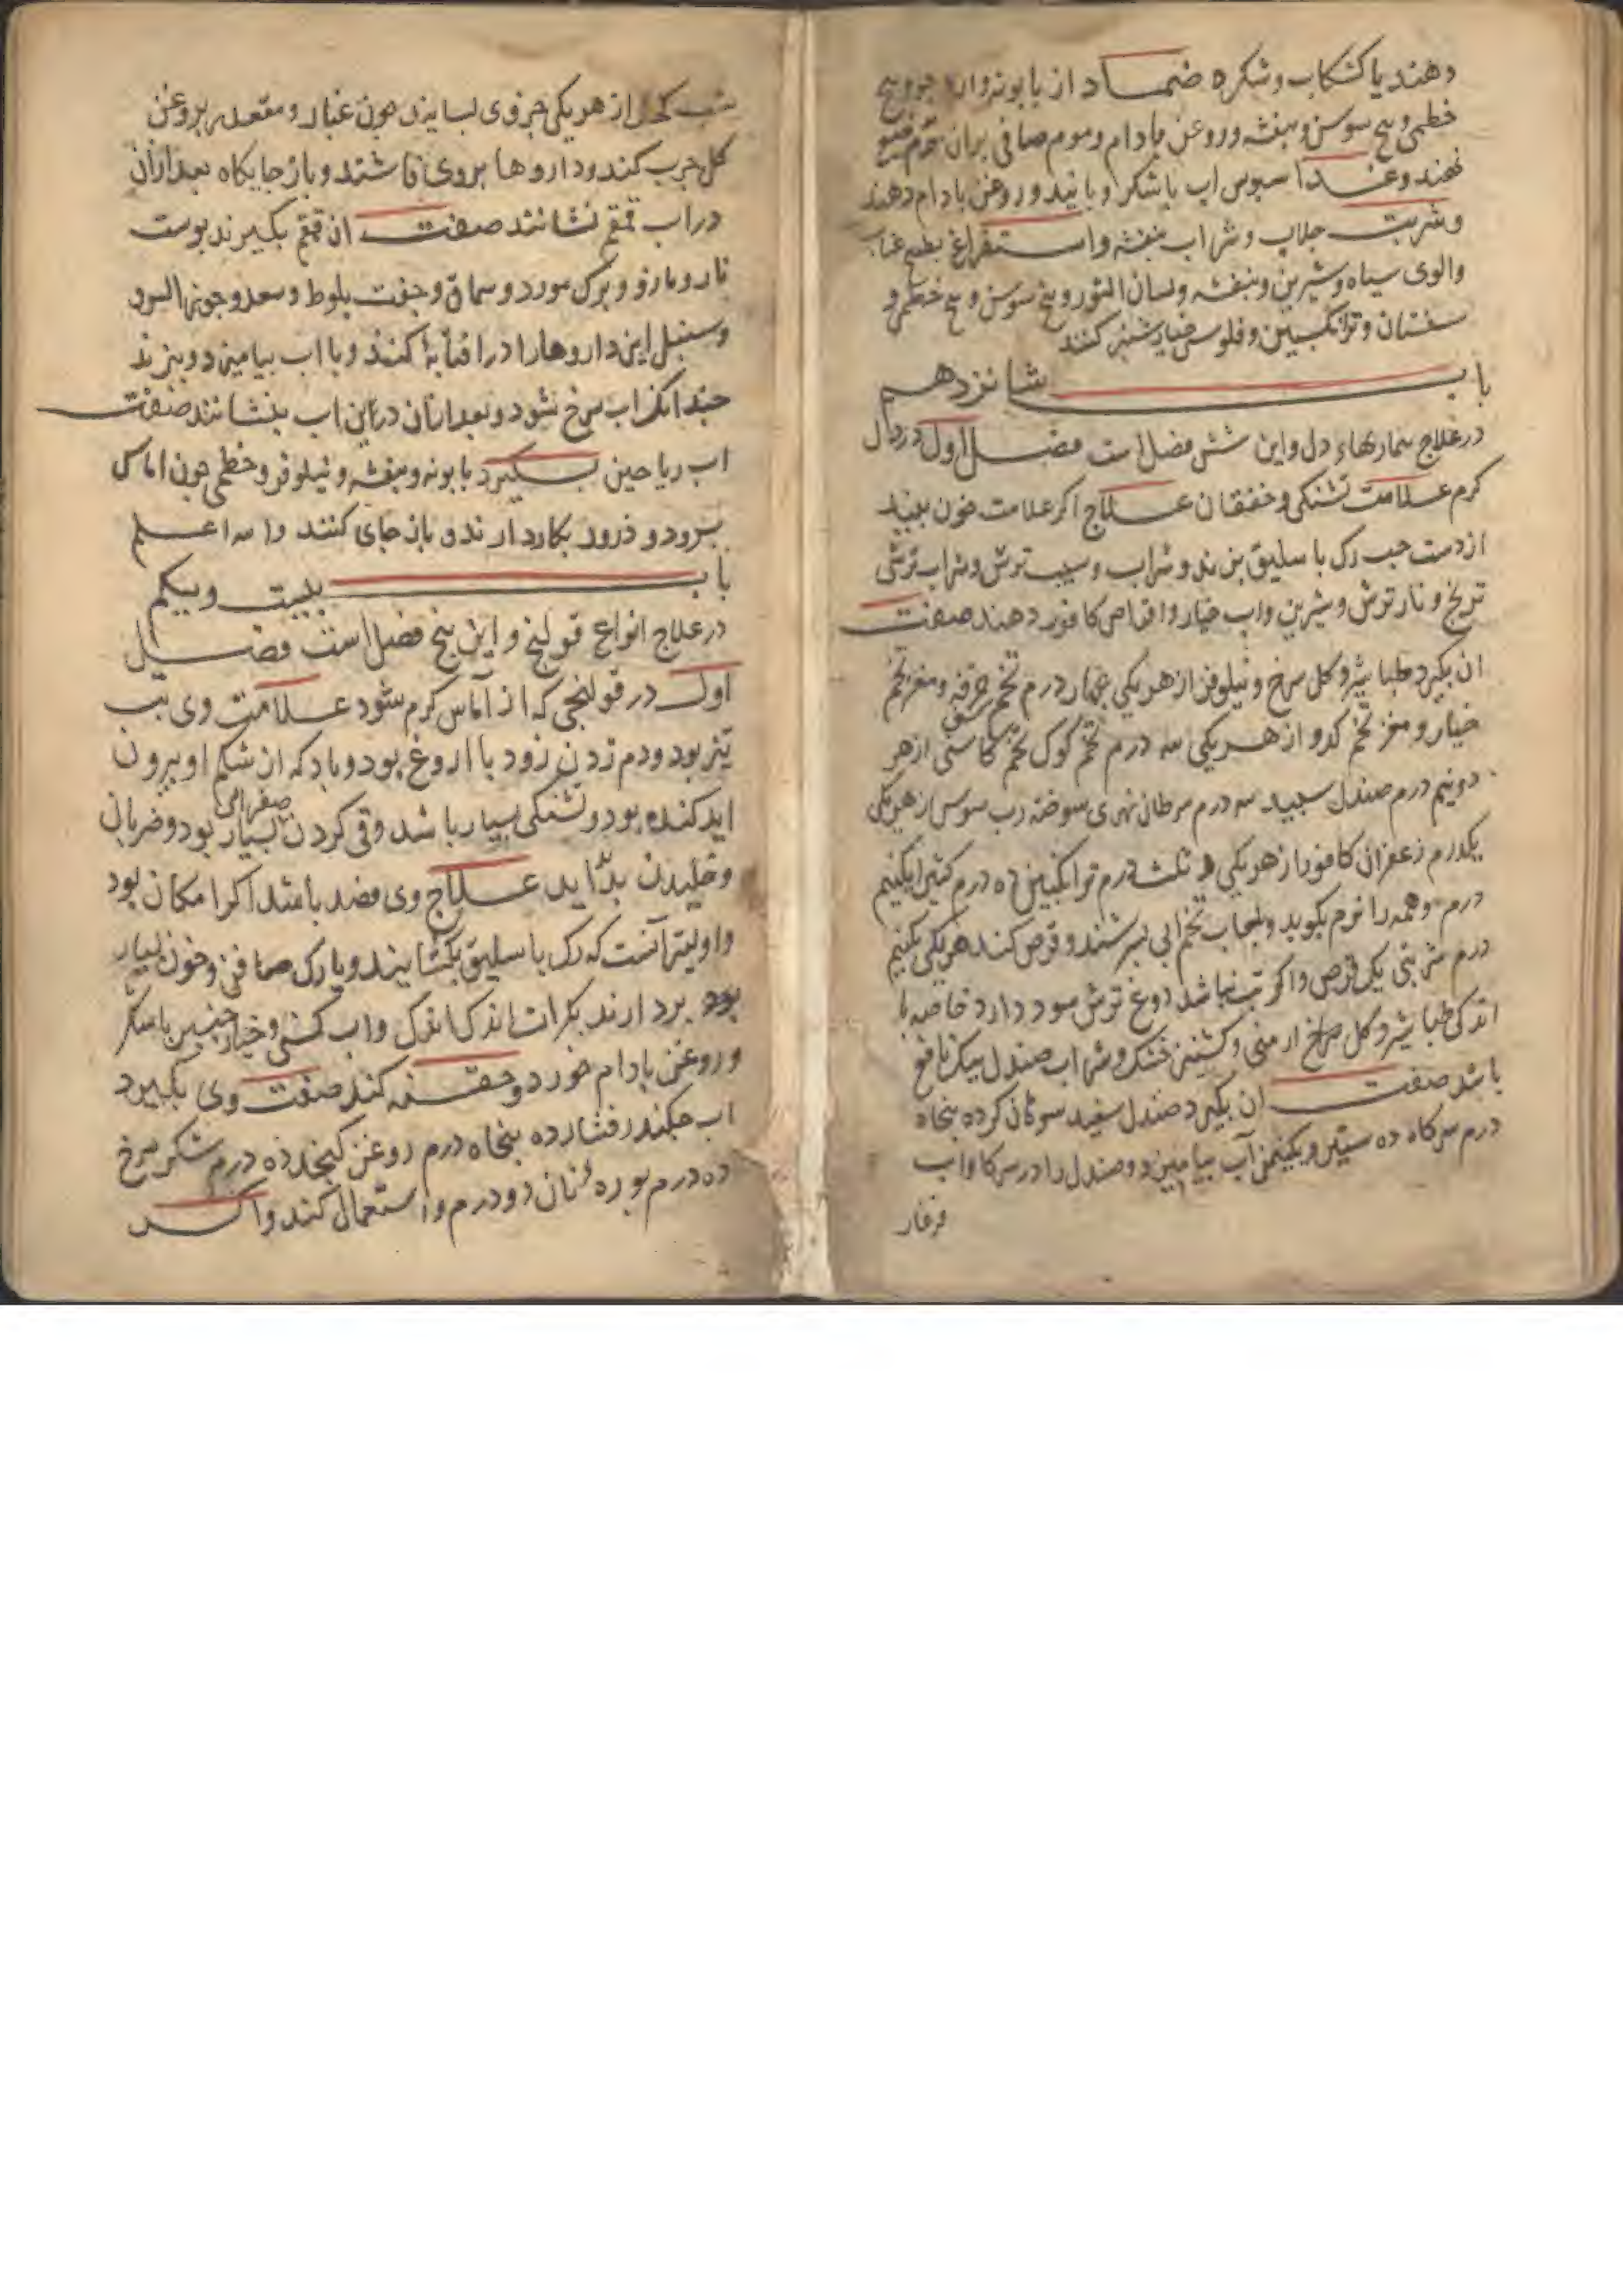 دهند یا کشکاب و شکره ضمـاد از بابونه و ارد جو و بیخ
خطمی و بیخ سوسن و بنفشه و روغن بادام و موم صافی بران
نهند و غـذا سبوس اب با شکر و پانید و روغن بادام دهند
و شربت جلاب و شراب بنفشه و استفراغ بطبیخ عناب
والوی سیاه و شیرین و بنفشه و لسان الثور و بیخ سوسن و بیخ خطمی و
سفستان و ترانکبین و فلوس خیارشنبر کنند
باب شانزدهم
در علاج بیماریهاء دل و این شش فصل است فصل اول در دل
کرم علامت تشنکی و خفقان علاج اکر علامت خون بیند
از دست جب رک باسلیق بزنند و شراب و سیب ترش و شراب ترشی
ترنج و نار ترش و شیرین واب خیار واقراص کافور دهند صفت
ان بکیرد طباشیر و کل سرخ و نیلوفر از هر یکی جهار درم تخم خرفه و مغز تخم
خیار و مغز تخم کدو از هر یکی سه درم تخم کوک تخم کاسنی از هر
دو نیم درم صندل سبید سه درم سرطان نهری سوخته رب سوس از هر یکی
یکدرم زعفران کافور از هر یکی ثلث درم ترانکبین ده درم کتیرا یکنیم
درم و همه را نرم بکوبد و بلعاب تخم ابی بسرشند و قرص کند هر یکی یکنیم
درم شربتی یک قرص واکر تب نباشد دوغ ترش سود دارد خاصه با
اندکی طباشیر و کل سرخ ارمنی و کشنیز خشک و شراب صندل نیک نافع
باشد صفت ان بکیرد صندل سفید سوهان کرده بنجاه
درم سرکاه ده ستیر و یکنیمن آب بیامیزد و صندل را در سرکا واب
شب از هر یکی جزوی بسایند جون غبار و مقعد بروغن
کل جرب کند و داروها بروی فاشند و باز جایکاه بعد ازان
در اب قمقم نشانند صفت ان قمقم بکیرند بوست
نار و مازو و برک مورد و سماق و جفت بلوط و سعد و جوز السرو
و سنبل این داروها را در افتابه کنند و با اب بیامیزد و بزند
جندانک اب سرخ شود و بعد ازان در این اب بنشانند صفت
اب ریاحین بکیرد بابونه و بنفشه و نیلوفر و خطمی جون اماس
ببرود و ذرور بکار دارند و باز جای کنند والله اعلم
باب بیست و یکم
در علاج انواع قولنج و این بنج فصل است فصل
اول در قولنجی که از آماس کرم شود علامت وی تب
تیز بود و دم زدن زود با اروغ بود و باد که از شکم او بیرون
اید کنده بود و تشنکی بسیار باشد و قی کردن صفرائی بسیار بود و ضربان
و خلیدن بدّاید علاج وی فصد باشد اکر امکان بود
واولیتر آنست که رک باسلیق بکشایند و یا رک صافن و خون بسیار
بود بردارند بکرات اندک اندک واب کسنی و خیارجنبر با شکر
و روغن بادام خورد و حقنه کند صفت وی بکیرد
اب جکندر فشارده بنجاه درم روغن کنجد ده درم شکر سرخ
ده درم بوره نان دو درم واستعمال کند واکر